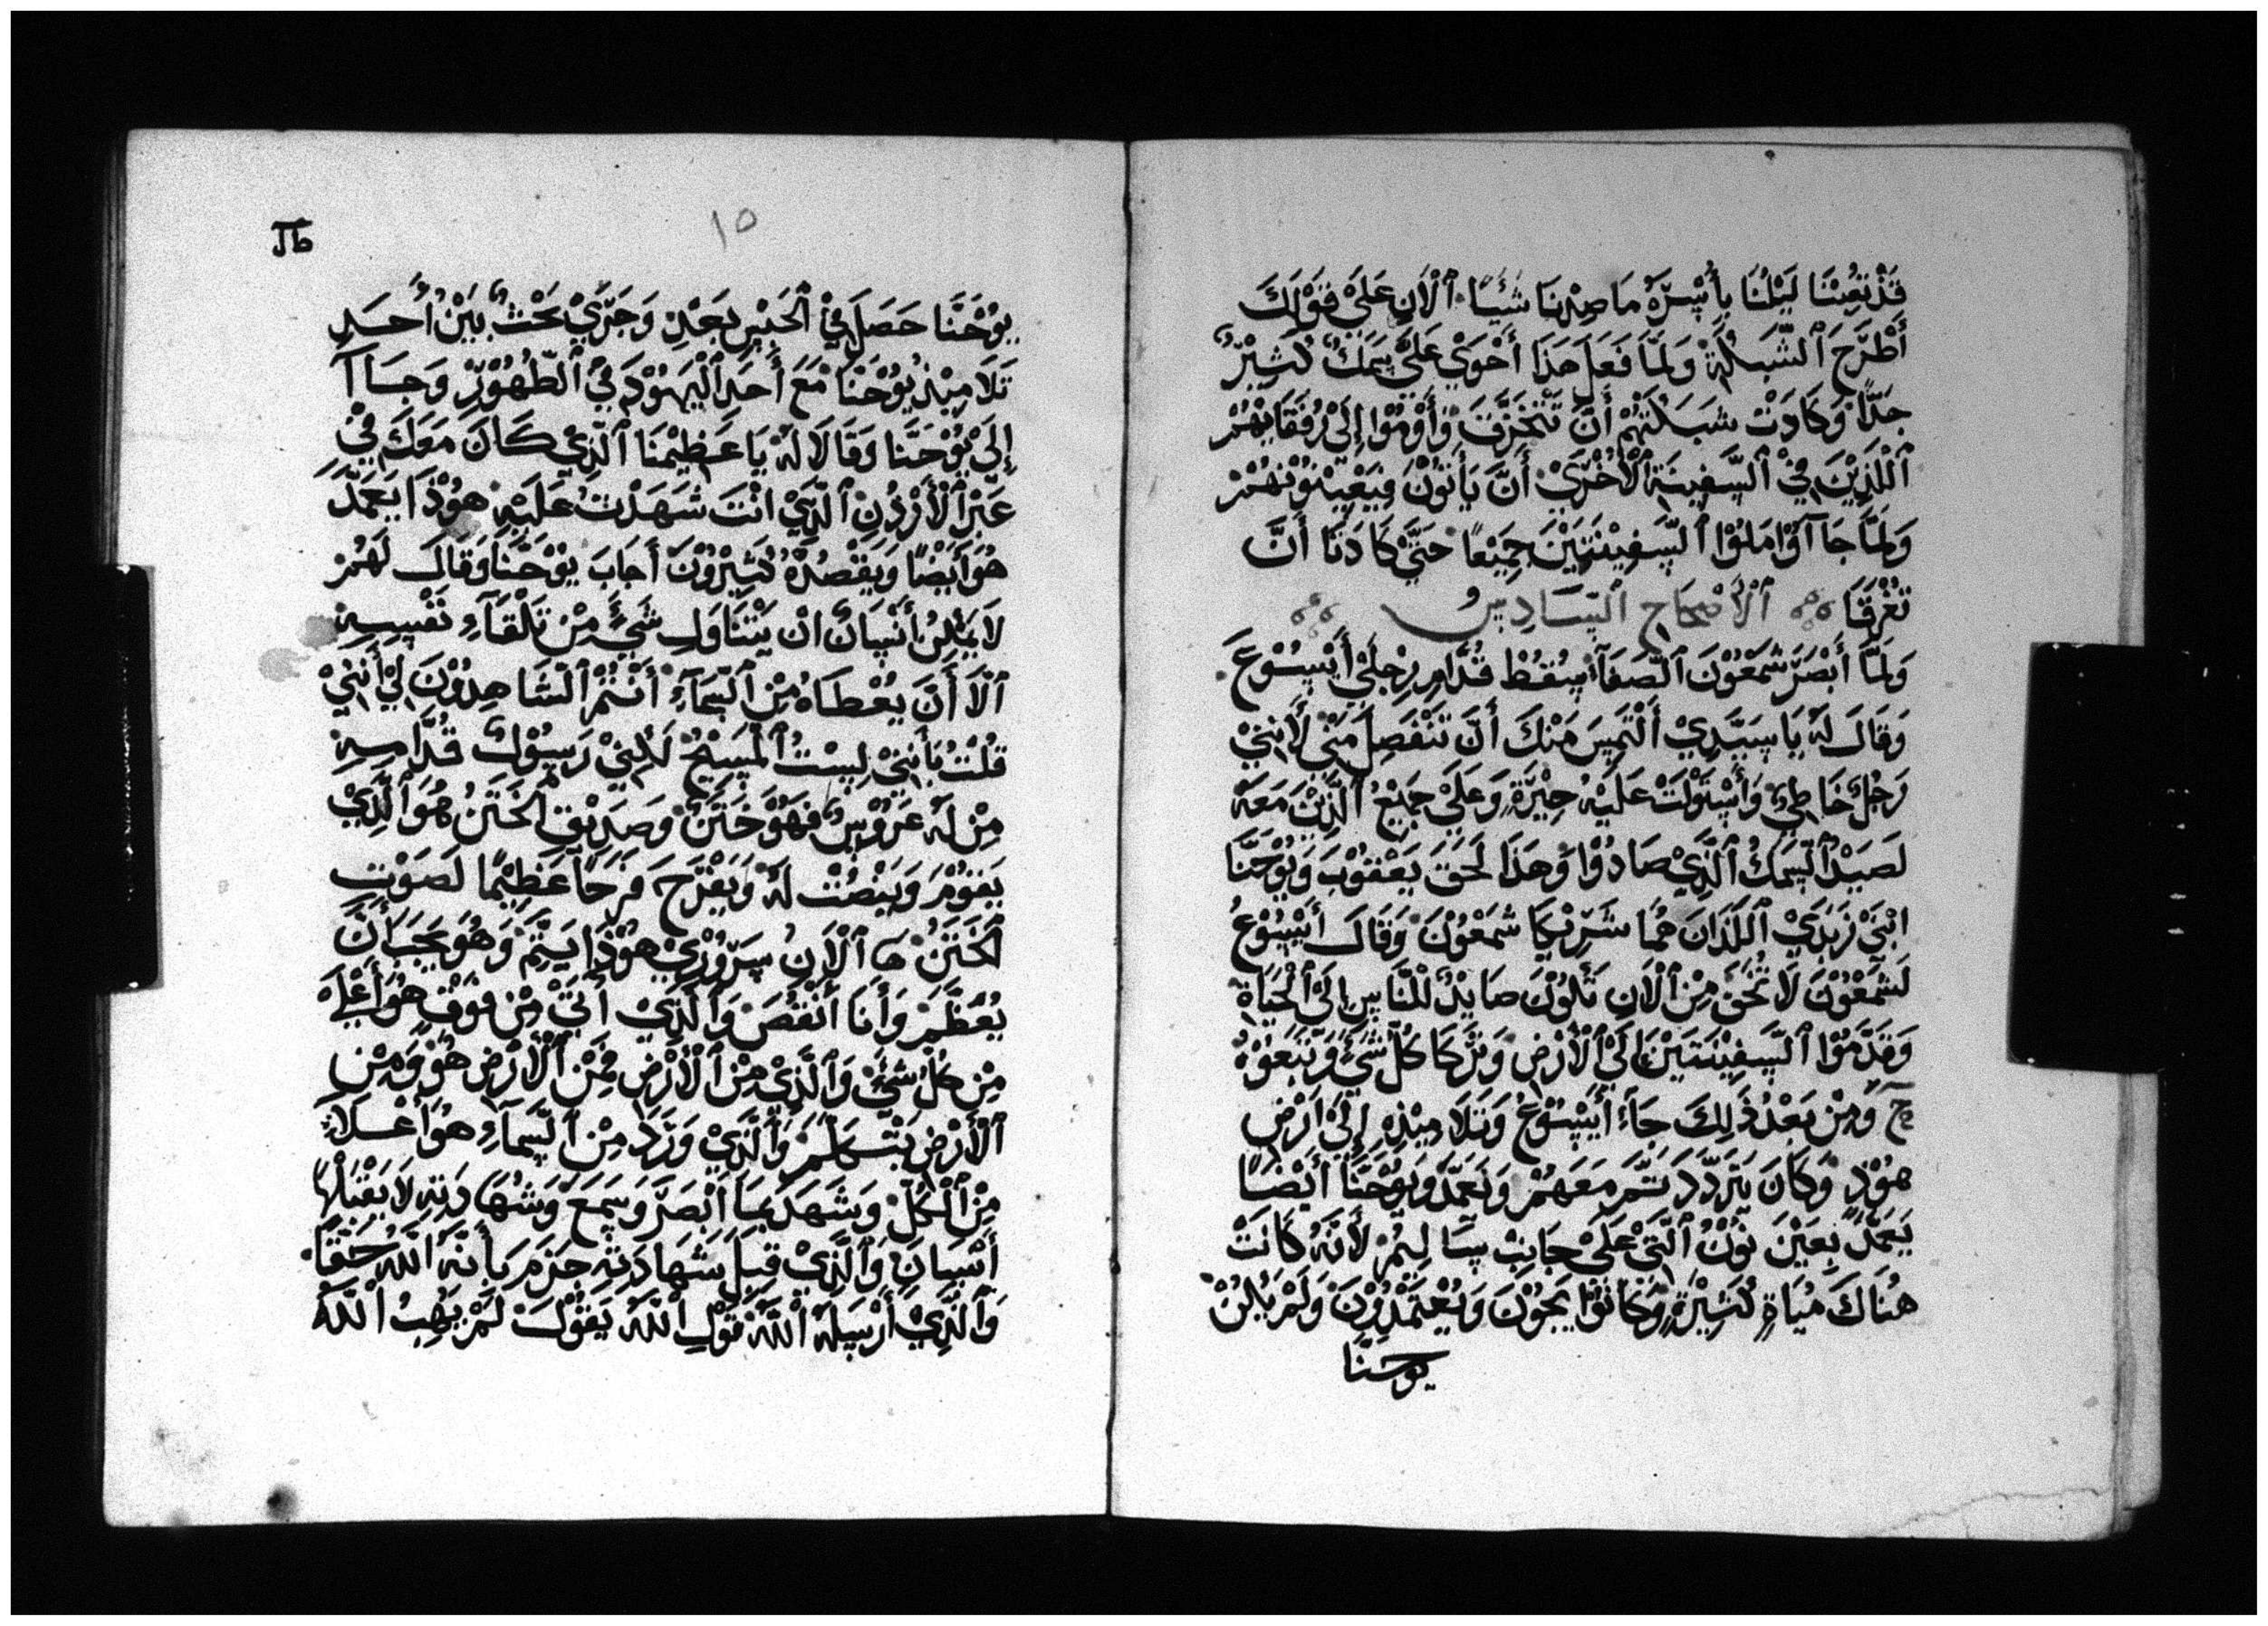 قَدْ تَعِبْنَا لَيْلَنَا بِأُسْرِهُ مَا صِدْنَا شَيْئًا ٱلْآنِ عَلَيْ قَوْلَكَ
أَطْرَحِ ٱلشَّبَكَةْ وَلَمَّا فَعَلَ هَذَا أَحْوَيِ عَلَيَّ سَمَكٌ كَثِيْرٌ
جِدًّا وَكَادَتْ شَبَكَتَهُمْ أَنَّ تَتْخَرَّقَ وَأَوْمُوْا إِلَيْ رُفَقَايَهُمْ
ٱللَّذِيْنَ فِيْ ٱلسَّفِينَةِ ٱلْأُخْرَيْ أَنَّ يَأتُوْنَ فِيَعْيْنُوْنَهُمْ
وَلَمَّا جَآ آوْا مَلُوْا ٱلسَّفِيْنَتَيْنَ جَمِيْعًا حَتَّيْ كَادَتَا أَنَّ
تَغْرَقَا ٱلْأَصْحَاحِ ٱلسَّادِسُ
وَلَمَّا أَبْصَرَ شَمْعُوْنَ ٱلصَّفَآ سَقُطْ قُدَّامِ رِجْلَيْ أَيْسُوْعَ
وَقَالَ لَهُ يَا سَيِّدِيْ أَلْتَمِسَ مِنْكَ أَنَّ تَنْفَصِلَ مِنِّيْ لَأَنِّنِيْ
رَجُلٌ خَاطِئٌ وَأَسْتَوْلَتْ عَلَيْهُ حِيْرَةٍ وَعَلَيْ جَمِيْعُ ٱلَّذِيْنَ مَعَهُ
لَصَيْدُ ٱلسَّمَكُ ٱلَّذِيْ صَادُوْا وَهَذَا لَحَقَ يَعْقُوْبَ وَيُوْحَنَّا
ابْنَيْ زَبَدِيْ ٱللَّذَانَ هُمَا شَرِيْكَا شَمْعُوْنَ وَقَالَ أَيْسُوْعُ
لَشَمْعُوْنَ لَا تَخَفَ مِنْ ٱلْآنِ تَكُوْنَ صَايِدٌ لْلنَّاسِ إِلَيْ ٱلْحَيَاةَ
وَقَدَّمُوْا ٱلسَّفِيْنَتَيْنَ إِلَيْ ٱلْأَرْضِ وَتَرَكَا كُلَّ شَيْئٍ وَتَبَعُوْهُ
ج وَمِنْ بَعْدُ ذَلِكَ جَآءَ أَيْسُوْعُ وَتَلَامِيْذِهِ إِلَيْ أَرْضِ
هُوْذٍ وَكَانَ يَتَرَدَّدَ ثَمَّ مَعَهُمْ وَيَعَمَّدَ وَيُوْحَنَّا أَيْضًا
يَعَمَّدَ بَعَيْنَ نُوْنُ ٱلَّتِيْ عَلَيْ جَانِبِ سَالِيْمُ لَأَنَّهُ كَانَتْ
هُنَاكَ مُيَاةٍ كَثِيْرَةٍ وَكَانُوْا يَجُوْنَ وَيُعْتَمَّدُوْنَ وَلَمْ يَكُنْ
يوحنَّا
١٥
يُوْحَنَّا حَصَلَ فِيْ ٱلْحَبْسِ بَعْدِ وَجَرَيْ بَحْثٌ بَيْنْ أُحَدِ
تَلَامِيْذْ يُوْحَنَّا مَعَ أَحَدِ ٱلْيَهُوْدَ فِيْ ٱلطُّهُوْرِ وَجَاآ
إِلَيْ يُوْحَنَّا وَقَالَا لَهُ يَا عَظِيْمَنَا ٱلَّذِيْ كَانَ مَعَكَ فِيْ
عَبْرِ ٱلْأُرْدُنِ ٱلَّذِيْ انْتَ شَهَدْتَ عَلَيْهِ هُوْذَا يَعَمَّدَ
هُوَ أَيْضًا وَيَقْصُدُهُ كَثِيْرُوْنَ أَجَابَ يُوْحَنَّا وَقَالَ لَهُمْ
لَا يُمْكِنُ أَنْسَانٌ انْ يَتْنَاوَلَ شَيْءٍ مِنْ تَلْقَآءِ نَفْسِهِ
ٱلَّا أَنَّ يُعْطَاهُ مِنْ ٱلسَّمَآءَ أَنْتُمْ ٱلشَّاهِدُوْنَ لِيْ أَنَّنِيْ
قُلْتُ بَأَنِّنِيْ لِسْتُ ٱلْمَسِيْحُ لَكِنِّيْ رَسُوْلٌ قُدَّامِهِ
مِنْ لَهُ عَرُوْسٌ فَهُوَ خَتَنٌ وَصَدِيْقِ ٱلْخَتَنُ هُوَ ٱلَّذِيْ
يَقُوْمَ وَيَنْصُتْ لَهُ وَيَفْرَحَ فَرَحًا عَظِيْمًا لَصَوْتِ
ٱلْخَتَنُ هَا ٱلْآنِ سَرُوْرِيْ هُوْذَا يَتِمَّ وَهُوَ يَجِبَ أَنَّ
يُعَظَّمَ وَأَنَا أَنْقُصَ وَٱلَّذِيْ أَتَيْ مِنْ فَوْقِ هُوَ أَعْلَاهُ
مِنْ كُلِّ شَيْئٍ وَٱلَّذِيْ مِنْ ٱلْأَرْضِ فَمِنْ ٱلْأَرْضِ هُوَ وَمِنْ
ٱلْأَرْضِ يَتْكَلَّمَ وَٱلَّذِيْ وَرَدَ مِنْ ٱلسَّمَآءِ هُوَ أَعْلَاءِ
مِنْ ٱلْكُلِّ وَشَهَدَ بَمَا أَبْصَرَ وَسَمَعَ وَشَهَادَتِهِ لَا يَقْبَلْهَا
أَنْسَانَ وَٱلَّذِيْ قِبَلَ شَهَادَتِهِ جَزَمَ بَأَنَّهُ ٱللَّهُ حَقًّا
وَٱلَّذِيْ أَرْسِلَهُ ٱللَّهُ قَوْلِ ٱللَّهُ يَقُوْلَ لَمْ يَهِبُ ٱللَّهُ